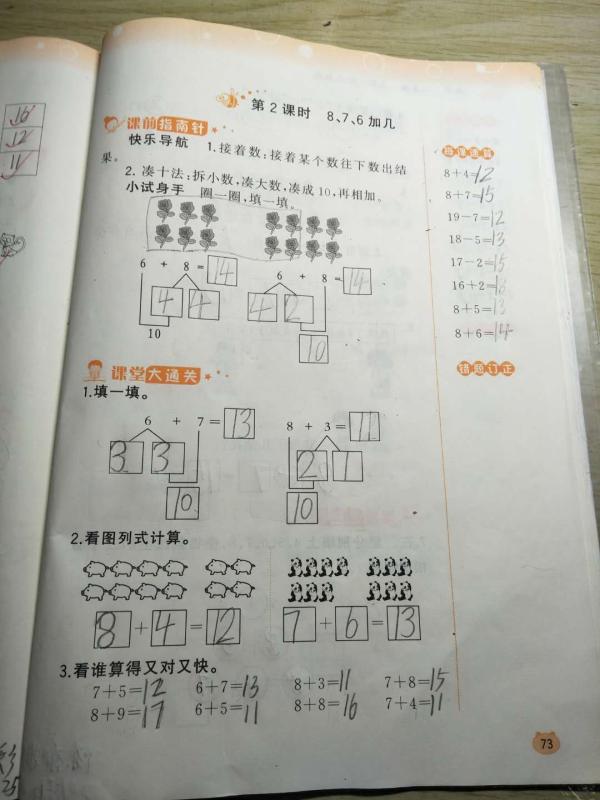 16
12
11
第2课时 8、7、6加几
课前指南针
快乐导航 1.接着数:接着某个数往下数出结
果。
2.凑十法:拆小数,凑大数,凑成10,再相加。
小试身手 圈一圈,填一填。
6 + 8 = 14
4 4
10
6 + 8 = 14
4 2
10
课堂大通关
1.填一填。
6 + 7 = 13
3 3
10
8 + 3 = 11
2 1
10
2.看图列式计算。
8 + 4 = 12
7 + 6 = 13
3.看谁算得又对又快。
7+5=12 6+7=13 8+3=11 7+8=15
8+9=17 6+5=11 8+8=16 7+4=11
每课速算
8+4=12
8+7=15
19-7=12
18-5=13
17-2=15
16+2=18
8+5=13
8+6=14
错题订正
73
25